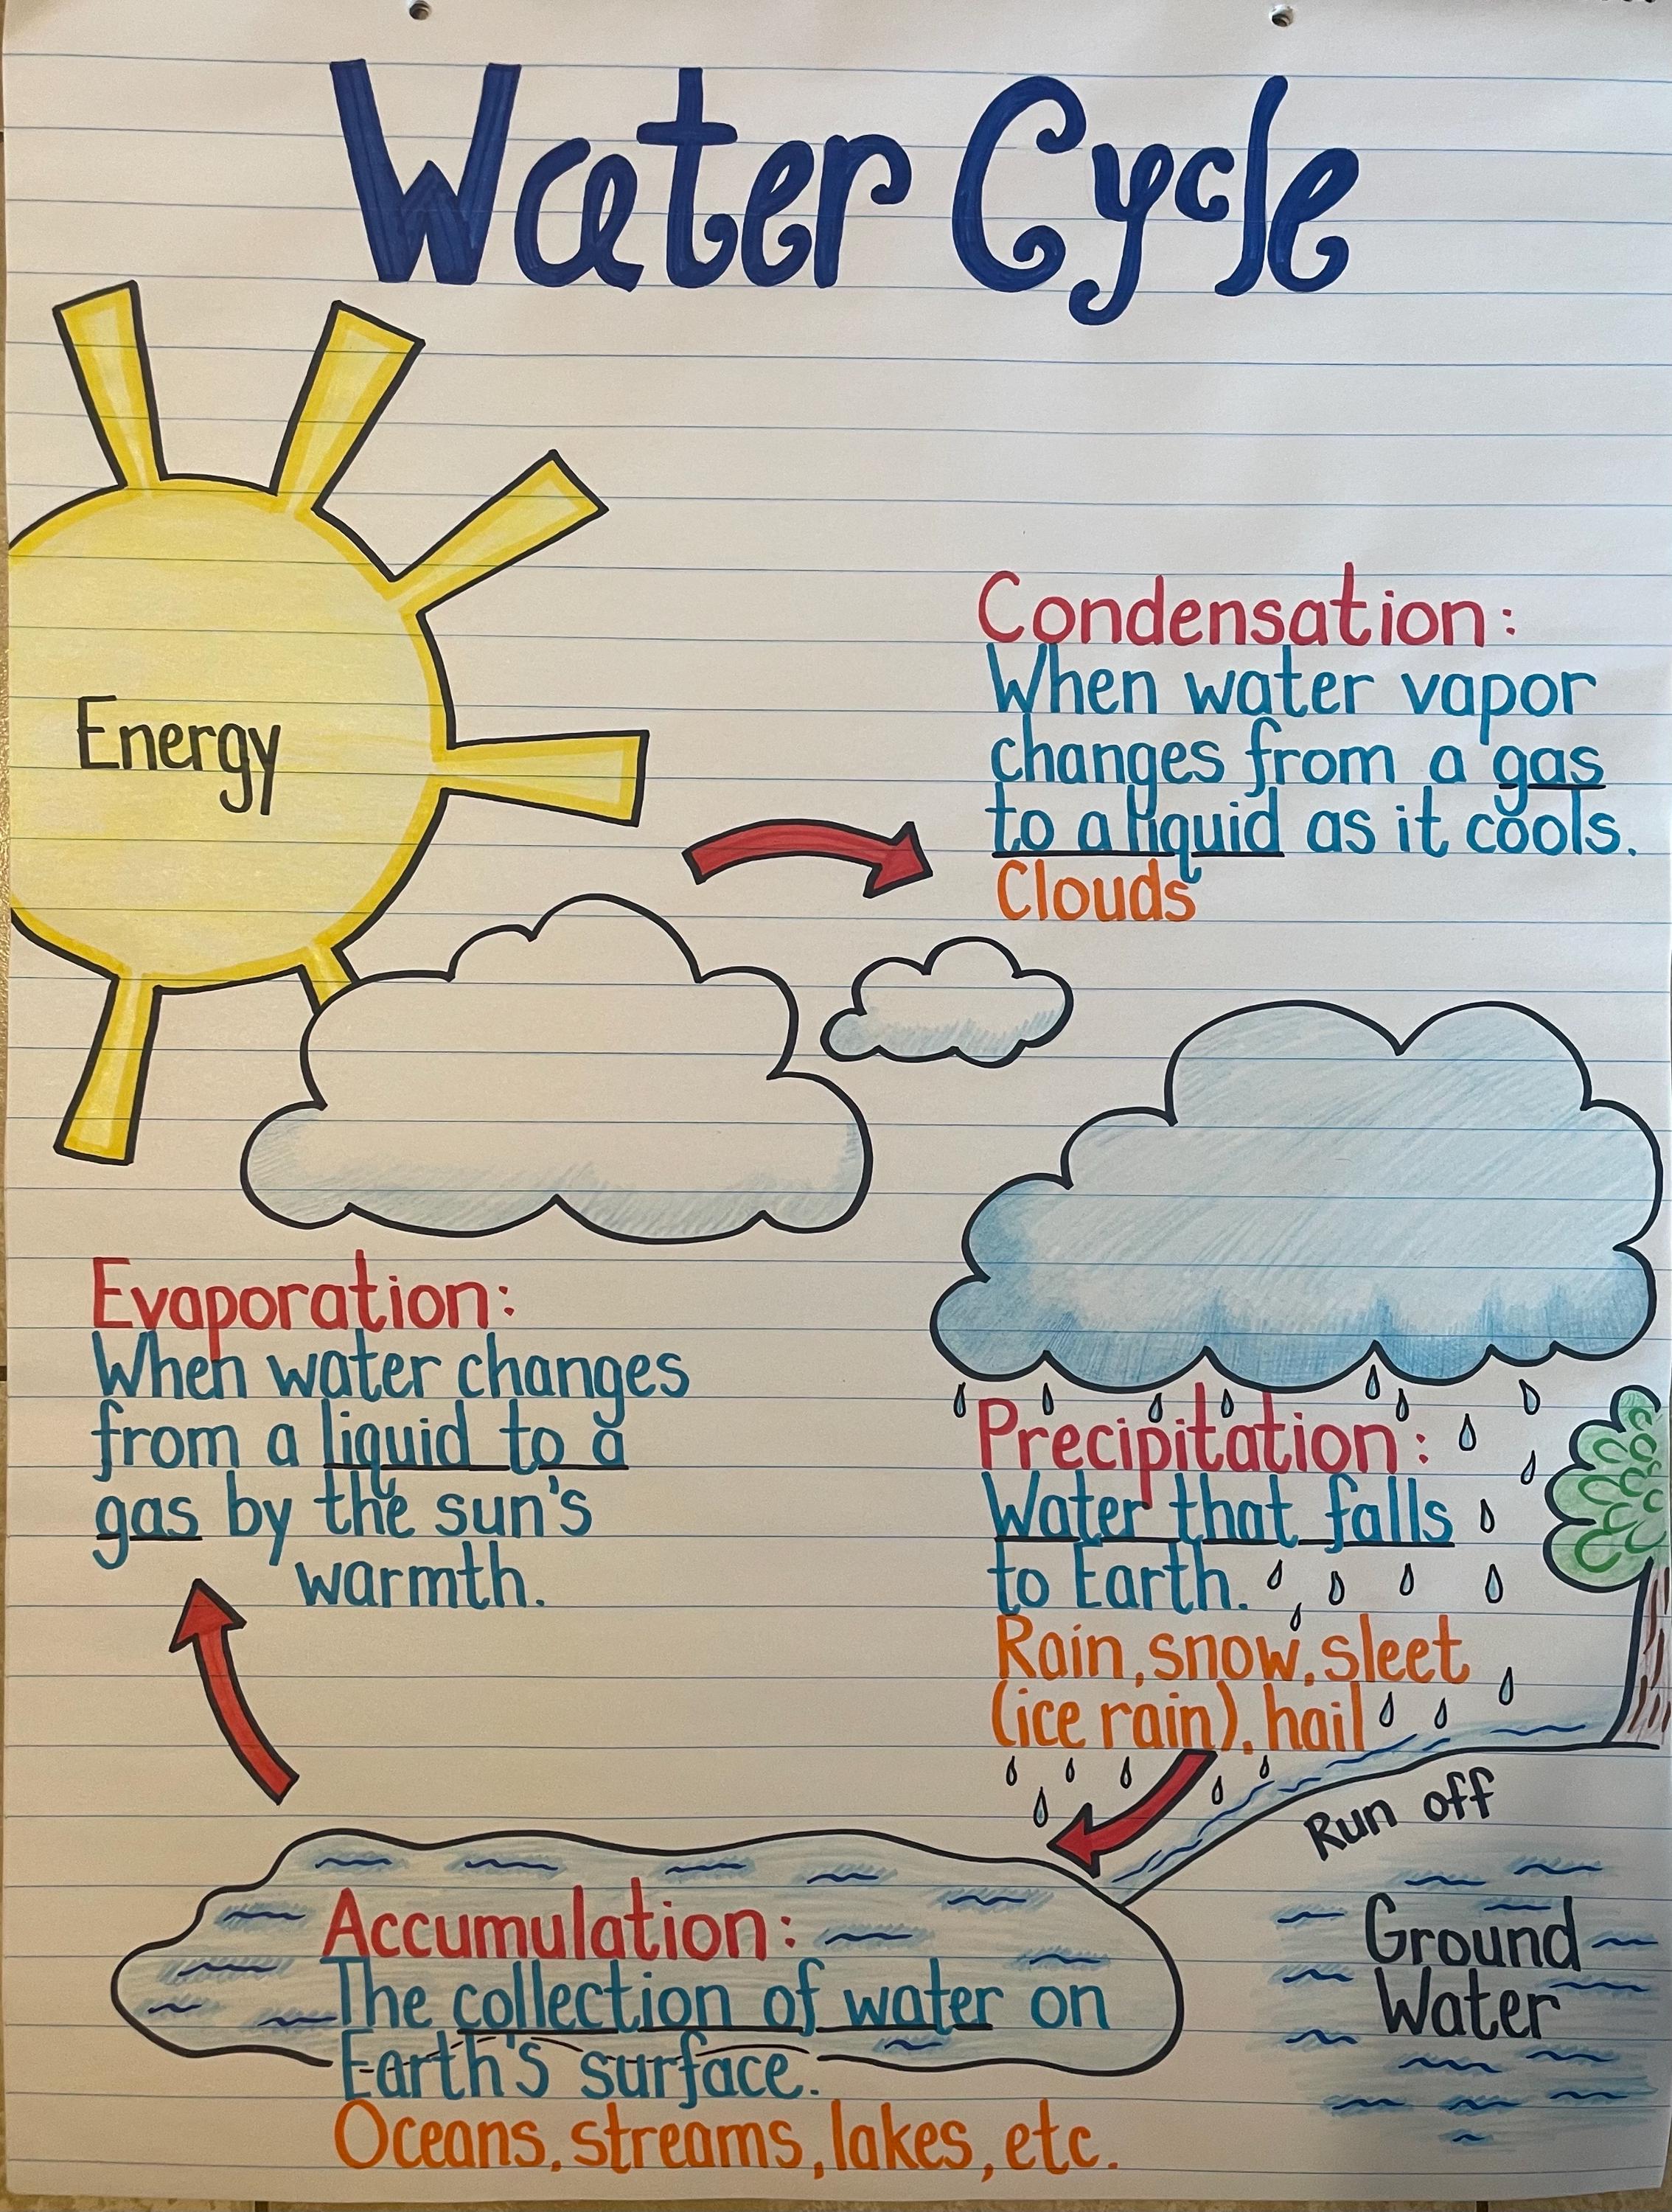 Water Cycle
Energy
Condensation:
When water vapor
changes from a gas
to a liquid as it cools.
Clouds
Evaporation:
When water changes
from a liquid to a
gas by the sun's
warmth.
Precipitation:
Water that falls
to Earth.
Rain, snow, sleet
(ice rain), hail
Run off
Ground
Water
Accumulation:
The collection of water on
Earth's surface.
Oceans, streams, lakes, etc.